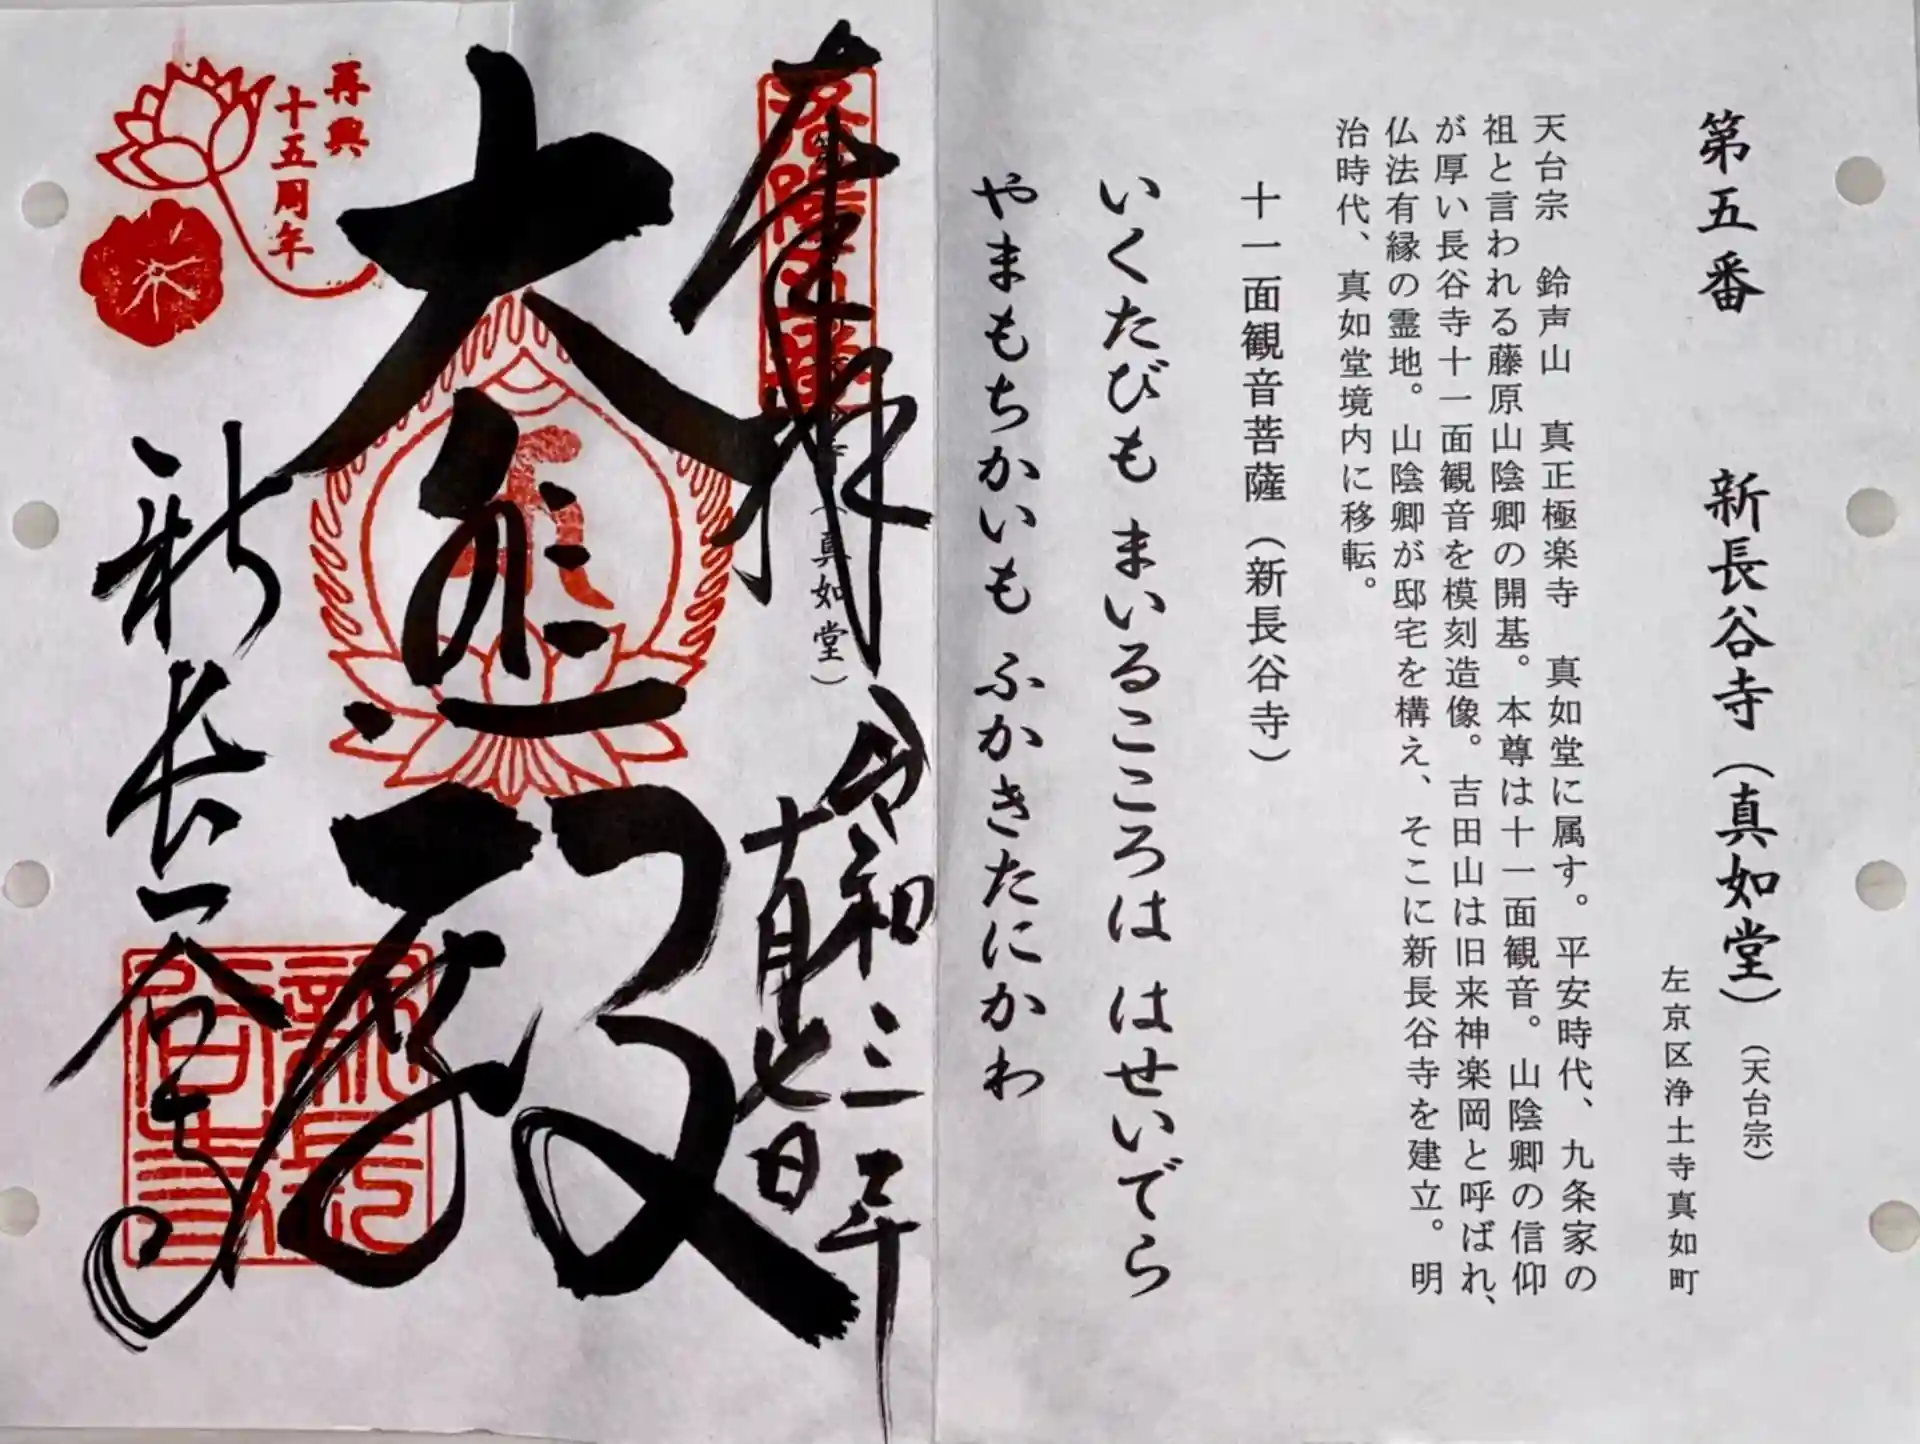 第五番 新長谷寺(真如堂)(天台宗)
左京区浄土寺真如町
天台宗 鈴声山 真正極楽寺 真如堂に属す。平安時代、九条家の
祖と言われる藤原山陰卿の開基。本尊は十一面観音。山陰卿の信仰
が厚い長谷寺十一面観音を模刻造像。吉田山は旧来神楽岡と呼ばれ、
仏法有縁の霊地。山陰卿が邸宅を構え、そこに新長谷寺を建立。明
治時代、真如堂境内に移転。
十一面観音菩薩(新長谷寺)
いくたびも まいるこころは はせいでら
やまもちかいも ふかきたにかわ
奉拝
洛陽五番
(真如堂)
令和三年
十一月七日
大悲殿
新長谷寺
再興
十五周年